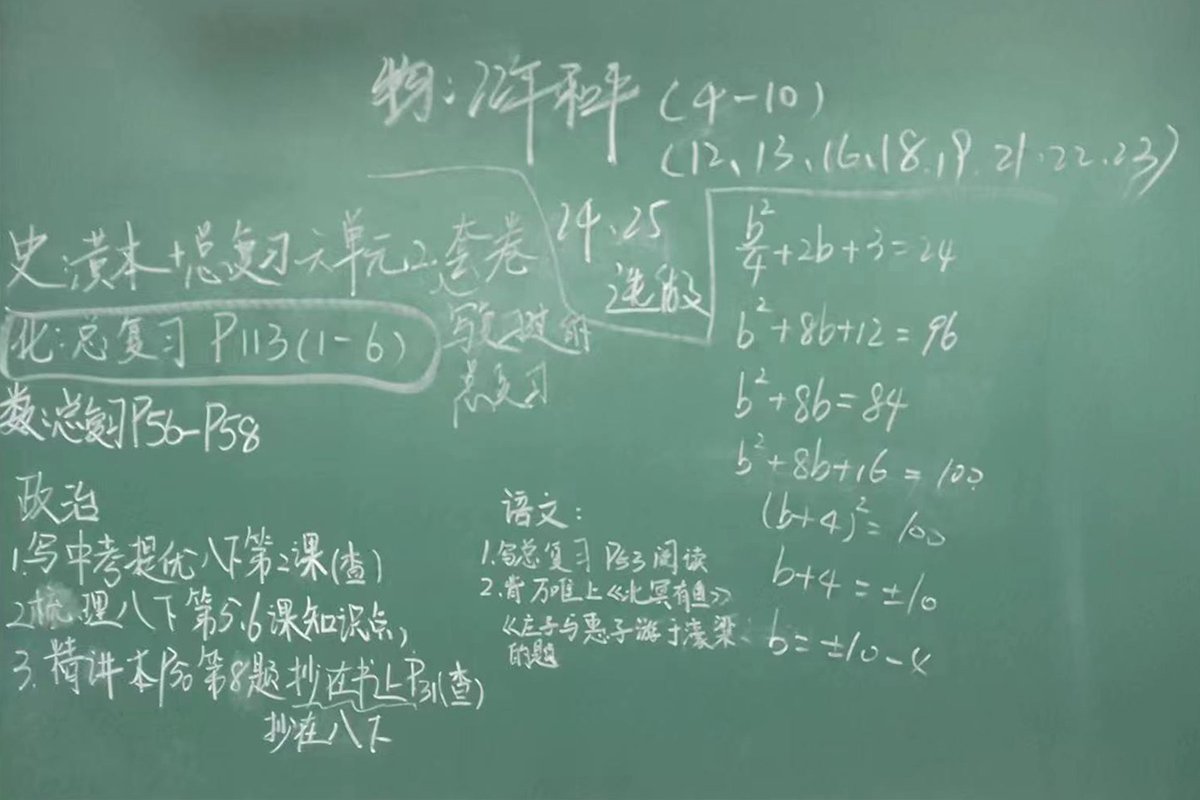 物:22年和平(4-10)
(12、13、16、18.19.21.22.23)
24.25
选做
史:黄本+总复习六单元2套卷
写复习过的
总复习
化:总复习 P113(1-6)
数:总复习P56-P58
政治
1.写中考提优八下第2课(查)
2.梳理八下第5.6课知识点,
3.精讲本P30第8题抄在书上P31(查)
抄在八下
语文:
1.写总复习 P53阅读
2.背万唯上《北冥有鱼》
《庄子与惠子游于濠梁
的题
b²/4+2b+3=24
b²+8b+12=96
b²+8b=84
b²+8b+16=100
(b+4)²=100
b+4=±10
b=±10-4